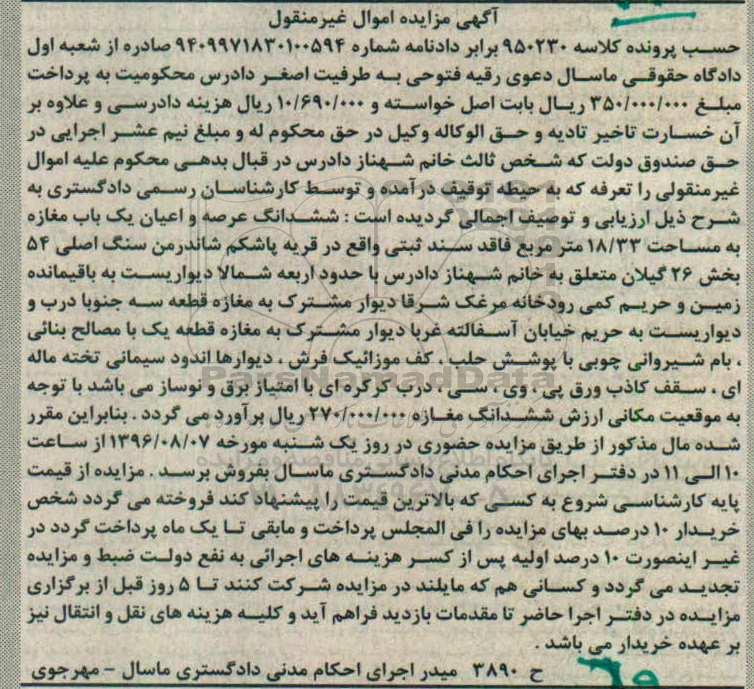 آگهی مزایده اموال غیرمنقول
حسب پرونده کلاسه ۹۵۰۲۳۰ برابر دادنامه شماره ۹۴۰۹۹۷۱۸۳۰۱۰۰۵۹۴ صادره از شعبه اول
دادگاه حقوقی ماسال دعوی رقیه فتوحی به طرفیت اصغر دادرس محکومیت به پرداخت
مبلغ ۳۵۰/۰۰۰/۰۰۰ ریال بابت اصل خواسته و ۱۰/۶۹۰/۰۰۰ ریال هزینه دادرسی و علاوه بر
آن خسارت تاخیر تادیه و حق الوکاله وکیل در حق محکوم له و مبلغ نیم عشر اجرایی در
حق صندوق دولت که شخص ثالث خانم شهناز دادرس در قبال بدهی محکوم علیه اموال
غیرمنقولی را تعرفه که به حیطه توقیف درآمده و توسط کارشناسان رسمی دادگستری به
شرح ذیل ارزیابی و توصیف اجمالی گردیده است : ششدانگ عرصه و اعیان یک باب مغازه
به مساحت ۱۸/۳۳ متر مربع فاقد سند ثبتی واقع در قریه پاشکم شاندرمن سنگ اصلی ۵۴
بخش ۲۶ گیلان متعلق به خانم شهناز دادرس با حدود اربعه شمالا دیواریست به باقیمانده
زمین و حریم کمی رودخانه مرغک شرقا دیوار مشترک به مغازه قطعه سه جنوبا درب و
دیواریست به حریم خیابان آسفالته غربا دیوار مشترک به مغازه قطعه یک با مصالح بنائی
، بام شیروانی چوبی با پوشش حلب ، کف موزائیک فرش ، دیوارها اندود سیمانی تخته ماله
ای ، سقف کاذب ورق پی ، وی ، سی ، درب کرکره ای با امتیاز برق و نوساز می باشد با توجه
به موقعیت مکانی ارزش ششدانگ مغازه ۲۷۰/۰۰۰/۰۰۰ ریال برآورد می گردد . بنابراین مقرر
شده مال مذکور از طریق مزایده حضوری در روز یک شنبه مورخه ۱۳۹۶/۰۸/۰۷ از ساعت
۱۰ الی ۱۱ در دفتر اجرای احکام مدنی دادگستری ماسال بفروش برسد . مزایده از قیمت
پایه کارشناسی شروع به کسی که بالاترین قیمت را پیشنهاد کند فروخته می گردد شخص
خریدار ۱۰ درصد بهای مزایده را فی المجلس پرداخت و مابقی تا یک ماه پرداخت گردد در
غیر اینصورت ۱۰ درصد اولیه پس از کسر هزینه های اجرائی به نفع دولت ضبط و مزایده
تجدید می گردد و کسانی هم که مایلند در مزایده شرکت کنند تا ۵ روز قبل از برگزاری
مزایده در دفتر اجرا حاضر تا مقدمات بازدید فراهم آید و کلیه هزینه های نقل و انتقال نیز
بر عهده خریدار می باشد .
ح ۳۸۹۰ میدر اجرای احکام مدنی دادگستری ماسال – مهرجوی
ParsNamadData